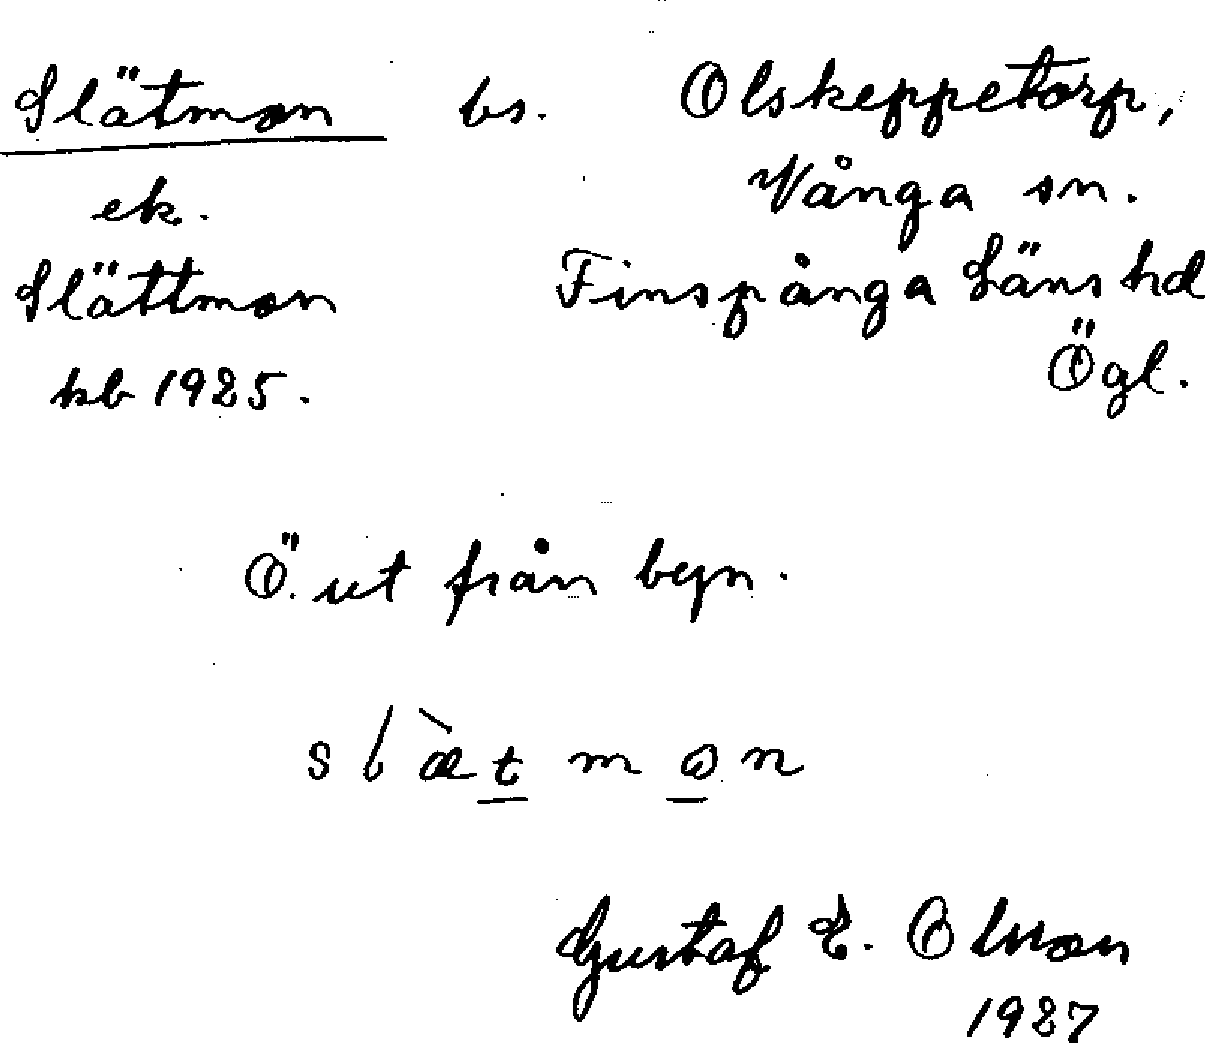 Slätmon bs. Olskeppetorp,
ek. Vånga sn.
Slättmon Finspånga Läns hd
kb 1925. Ögl.
Ö. ut från byn.
slæ̀tmɷn
Gustaf E. Olson
1927